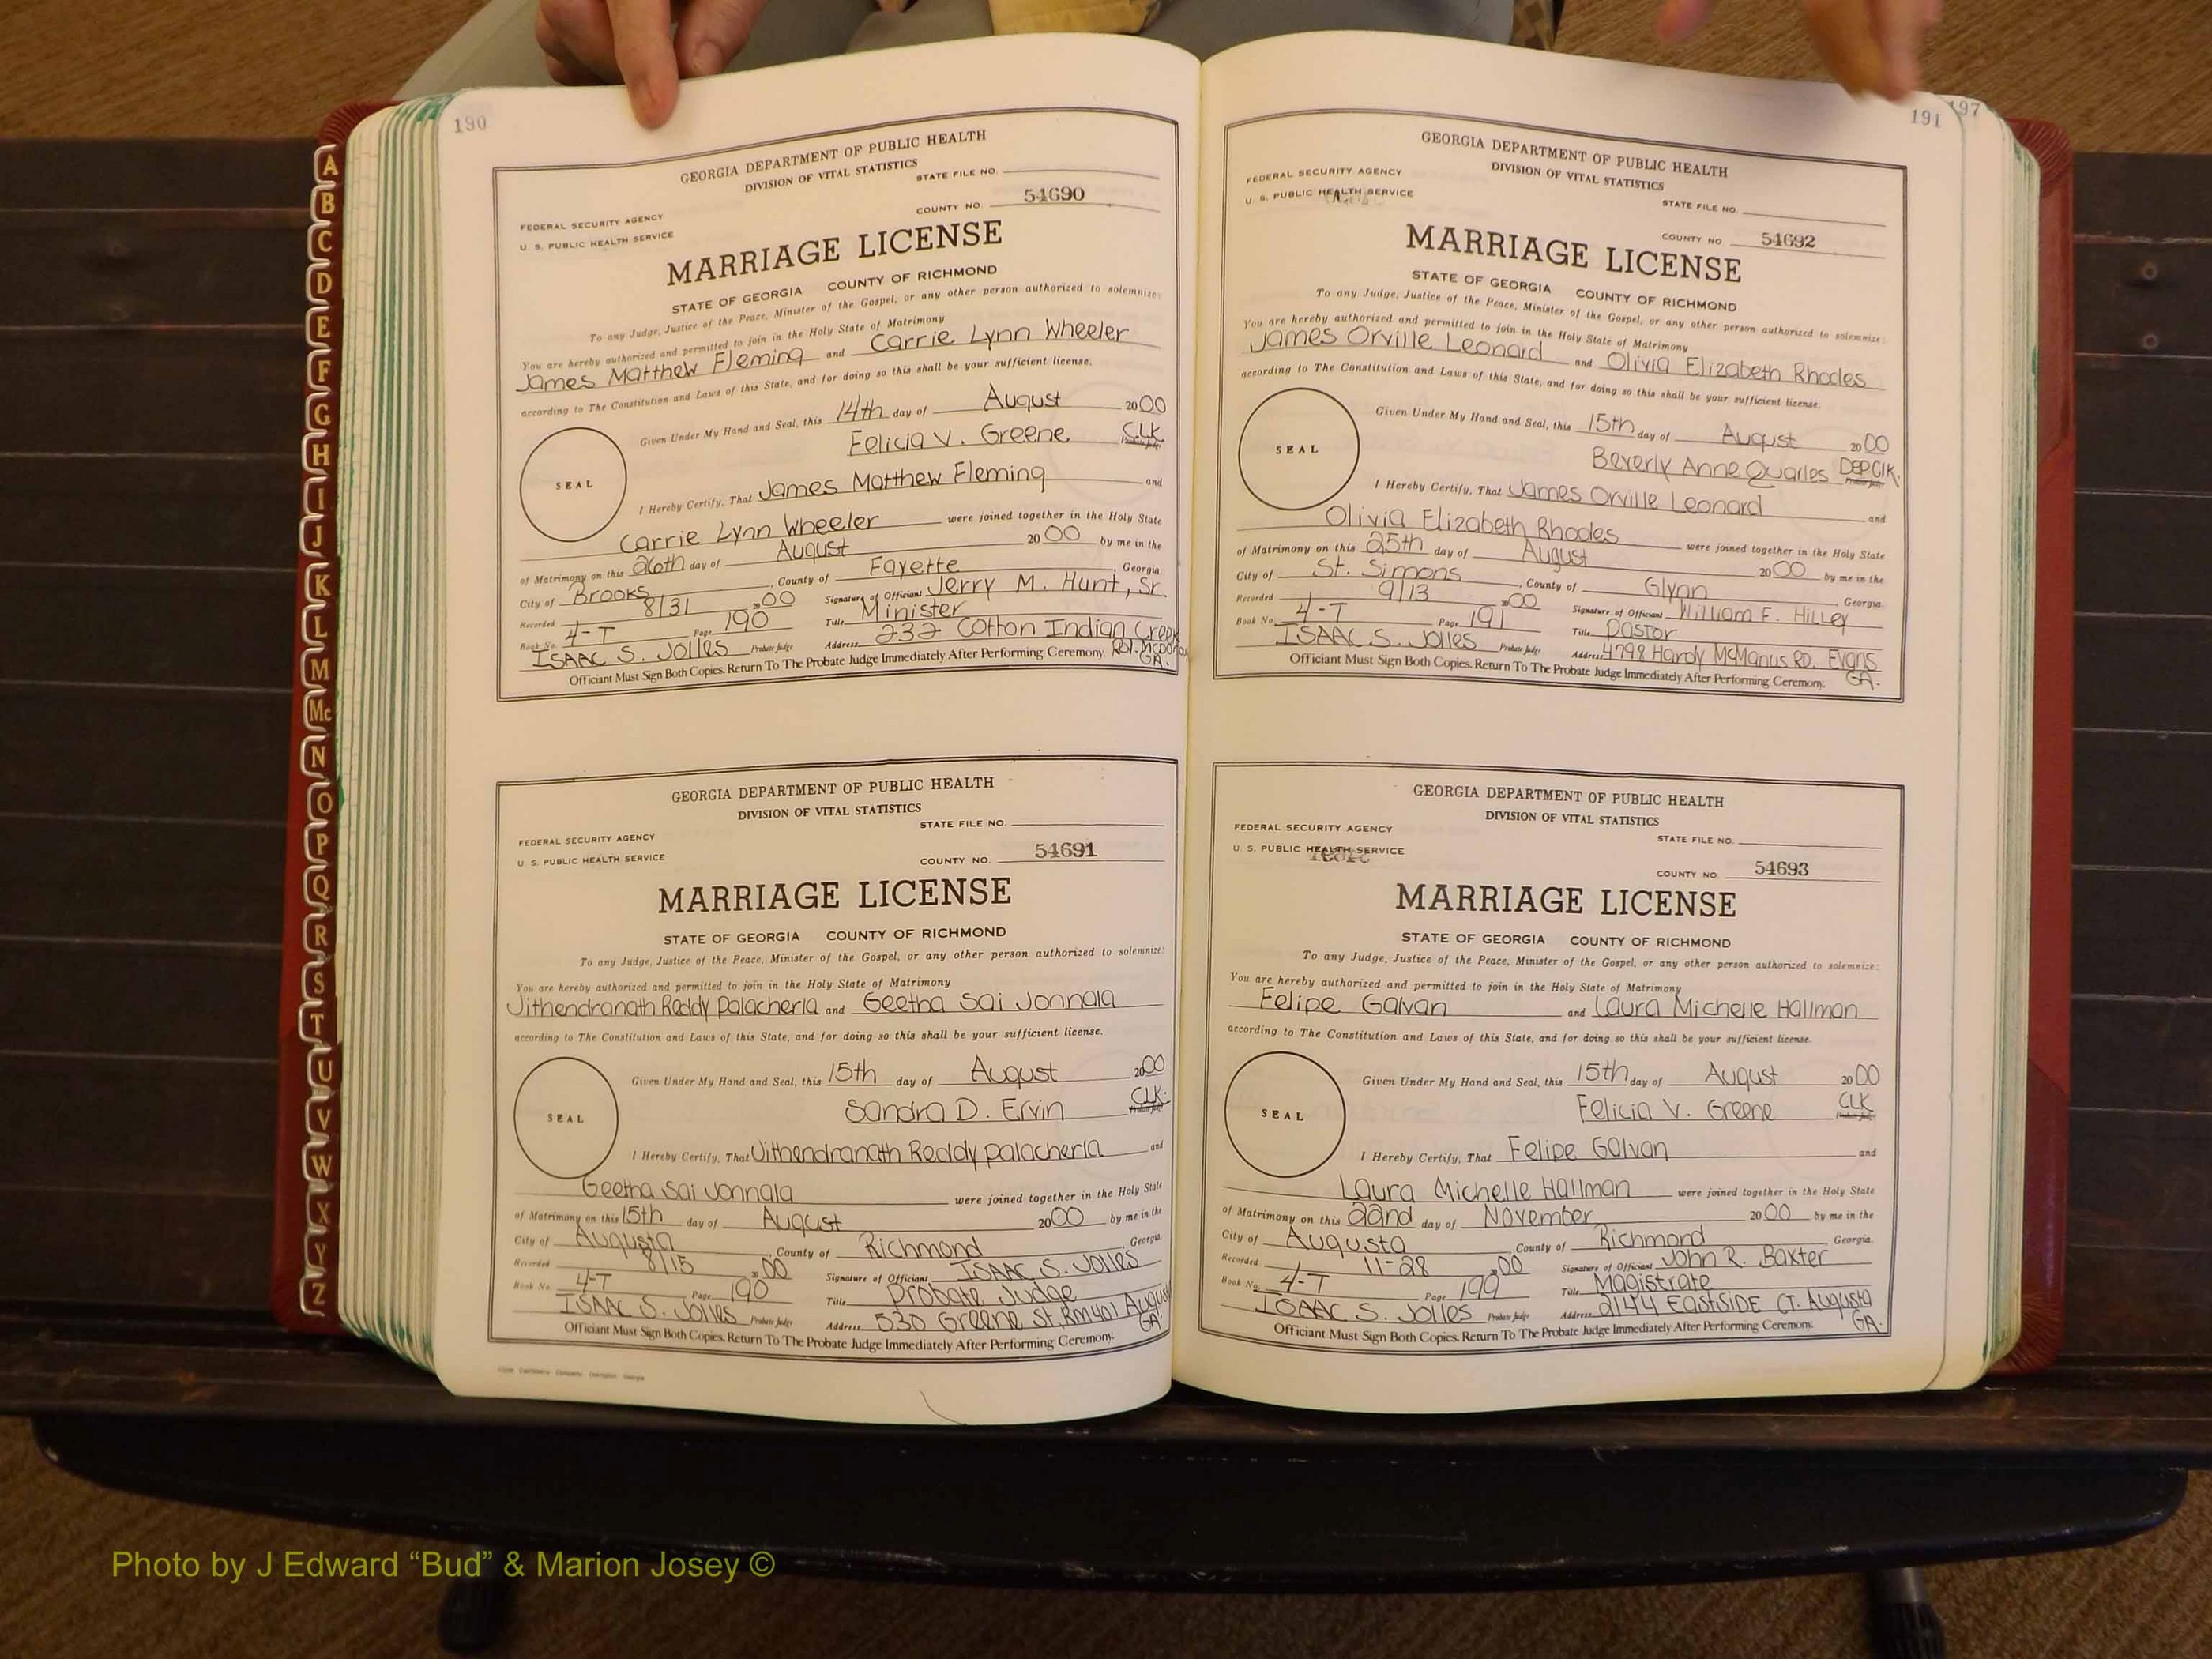 190
GEORGIA DEPARTMENT OF PUBLIC HEALTH
DIVISION OF VITAL STATISTICS
STATE FILE NO.
FEDERAL SECURITY AGENCY
U. S. PUBLIC HEALTH SERVICE
COUNTY NO. 54690
MARRIAGE LICENSE
STATE OF GEORGIA COUNTY OF RICHMOND
To any Judge, Justice of the Peace, Minister of the Gospel, or any other person authorized to solemnize:
You are hereby authorized and permitted to join in the Holy State of Matrimony
James Matthew Fleming and Carrie Lynn Wheeler
according to The Constitution and Laws of this State, and for doing so this shall be your sufficient license.
Given Under My Hand and Seal, this 14th day of August 2000
Felicia V. Greene CLK
Probate Judge
SEAL
I Hereby Certify, That James Matthew Fleming and
Carrie Lynn Wheeler were joined together in the Holy State
of Matrimony on this 26th day of August 2000 by me in the
City of Brooks, County of Fayette, Georgia.
Recorded 8/31 2000 Signature of Officiant Jerry M. Hunt, Sr.
Book No. 4-T Page 190 Title Minister
ISAAC S. JOLLES Probate Judge Address 232 Cotton Indian Creek
GA.
Officiant Must Sign Both Copies. Return To The Probate Judge Immediately After Performing Ceremony.
GEORGIA DEPARTMENT OF PUBLIC HEALTH
DIVISION OF VITAL STATISTICS
STATE FILE NO.
FEDERAL SECURITY AGENCY
U. S. PUBLIC HEALTH SERVICE
COUNTY NO. 54691
MARRIAGE LICENSE
STATE OF GEORGIA COUNTY OF RICHMOND
To any Judge, Justice of the Peace, Minister of the Gospel, or any other person authorized to solemnize:
You are hereby authorized and permitted to join in the Holy State of Matrimony
Jithendranath Reddy Palacherla and Geetha Sai Jonnala
according to The Constitution and Laws of this State, and for doing so this shall be your sufficient license.
Given Under My Hand and Seal, this 15th day of August 2000
Sandra D. Ervin CLK.
Probate Judge
SEAL
I Hereby Certify, That Jithendranath Reddy Palacherla and
Geetha Sai Jonnala were joined together in the Holy State
of Matrimony on this 15th day of August 2000 by me in the
City of Augusta, County of Richmond, Georgia.
Recorded 8/15 2000 Signature of Officiant ISAAC S. JOLLES
Book No. 4-T Page 190 Title Probate Judge
ISAAC S. JOLLES Probate Judge Address 530 Greene St, Rm 401 August
GA.
Officiant Must Sign Both Copies. Return To The Probate Judge Immediately After Performing Ceremony.
191
197
GEORGIA DEPARTMENT OF PUBLIC HEALTH
DIVISION OF VITAL STATISTICS
FEDERAL SECURITY AGENCY
U. S. PUBLIC HEALTH SERVICE
STATE FILE NO.
COUNTY NO. 54692
MARRIAGE LICENSE
STATE OF GEORGIA COUNTY OF RICHMOND
To any Judge, Justice of the Peace, Minister of the Gospel, or any other person authorized to solemnize:
You are hereby authorized and permitted to join in the Holy State of Matrimony
James Orville Leonard and Olivia Elizabeth Rhodes
according to The Constitution and Laws of this State, and for doing so this shall be your sufficient license.
Given Under My Hand and Seal, this 15th day of August 2000
Beverly Anne Quarles DEP.CLK.
Probate Judge
SEAL
I Hereby Certify, That James Orville Leonard and
Olivia Elizabeth Rhodes were joined together in the Holy State
of Matrimony on this 25th day of August 2000 by me in the
City of St. Simons, County of Glynn, Georgia.
Recorded 9/13 2000 Signature of Officiant William F. Hilley
Book No. 4-T Page 191 Title Pastor
ISAAC S. JOLLES Probate Judge Address 4798 Hardy McManus RD. Evans
GA.
Officiant Must Sign Both Copies. Return To The Probate Judge Immediately After Performing Ceremony.
GEORGIA DEPARTMENT OF PUBLIC HEALTH
DIVISION OF VITAL STATISTICS
FEDERAL SECURITY AGENCY
U. S. PUBLIC HEALTH SERVICE
STATE FILE NO.
COUNTY NO. 54693
MARRIAGE LICENSE
STATE OF GEORGIA COUNTY OF RICHMOND
To any Judge, Justice of the Peace, Minister of the Gospel, or any other person authorized to solemnize:
You are hereby authorized and permitted to join in the Holy State of Matrimony
Felipe Galvan and Laura Michelle Hallman
according to The Constitution and Laws of this State, and for doing so this shall be your sufficient license.
Given Under My Hand and Seal, this 15th day of August 2000
Felicia V. Greene CLK
Probate Judge
SEAL
I Hereby Certify, That Felipe Galvan and
Laura Michelle Hallman were joined together in the Holy State
of Matrimony on this 22nd day of November 2000 by me in the
City of Augusta, County of Richmond, Georgia.
Recorded 11-28 2000 Signature of Officiant John R. Baxter
Book No. 4-T Page Title Magistrate
ISAAC S. JOLLES Probate Judge Address 2144 EASTSIDE CT. Augusta
GA.
Officiant Must Sign Both Copies. Return To The Probate Judge Immediately After Performing Ceremony.
A
B
C
D
E
F
G
H
I
J
K
L
M
Mc
N
O
P
Q
R
S
T
U
V
W
X
Y
Z
Photo by J Edward “Bud” & Marion Josey ©